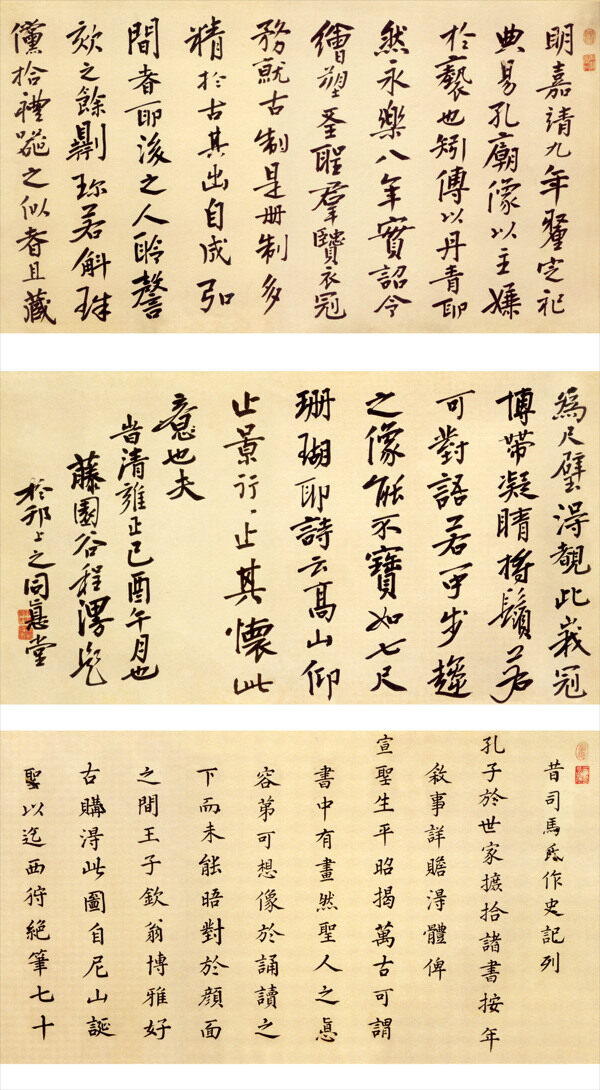 明嘉靖九年釐定祀
典易孔廟像以主嫌
於褻也矧傅以丹青耶
然永樂八年實詔令
繪塑至聖羣賢衣冠
務就古制是册制多
精於古其出自成弘
間者耶後之人聆謦
欬之餘剸珎若斛珠
儻拾禮器之似者且藏
為尺璧得覩此峩冠
博帶凝睛捋鬚若
可對語若可步趨
之像能不寶如七尺
珊瑚耶詩云高山仰
止景行行止其懷此
意也夫
旹清雍正己酉午月也
藤園谷程澐題
於邗上之同㥯堂
昔司馬氏作史記列
孔子於世家摭拾諸書按年
敘事詳贍得體俾
宣聖生平昭揭萬古可謂
書中有畫然聖人之悳
容第可想像於誦讀之
下而未能晤對於顔面
之間王子欽翁博雅好
古購得此圖自尼山誕
聖以迄西狩絕筆七十